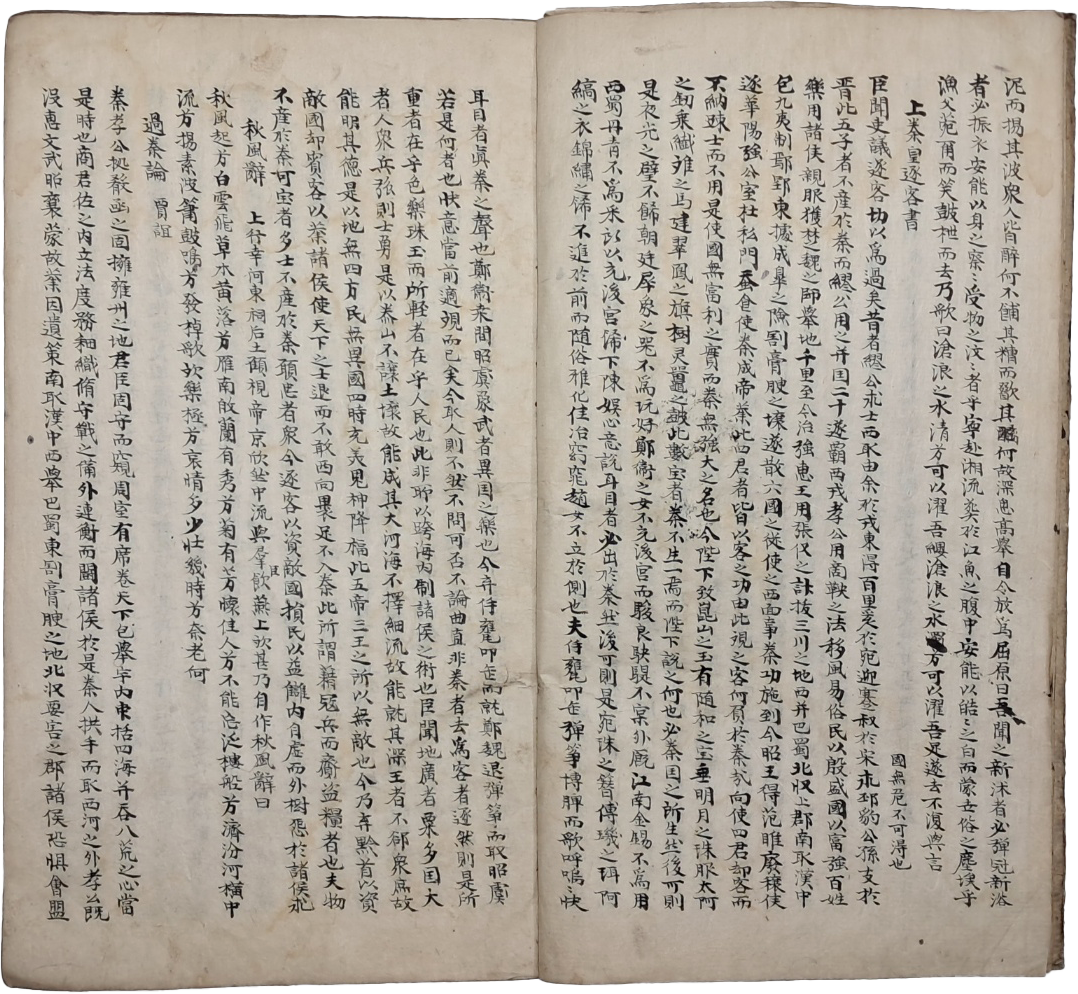 泥而揚其波衆人皆醉何不餔其糟而歠其醨何故深思高舉自令放爲屈原曰吾聞之新沐者必彈冠新浴
者必振衣安能以身之察〻受物之汶〻者乎寧赴湘流葬於江魚之腹中安能以皓〻之白而蒙世俗之塵埃乎
漁父莞爾而笑鼓枻而去乃歌曰滄浪之水清兮可以濯吾纓滄浪之水濁兮可以濯吾足遂去不復與言
上秦皇逐客書
國無危不可得也
臣聞吏議逐客切以爲過矣昔者繆公求士西取由余於戎東得百里奚於宛迎蹇叔於宋求邳豹公孫支於
晋此五子者不產於秦而繆公用之并国二十遂霸西戎孝公用商鞅之法移風易俗民以殷盛國以富強百姓
樂用諸侯親服獲楚魏之師舉地千里至今治強惠王用張仪之計拔三川之地西并巴蜀北収上郡南取漢中
包九夷制鄢郢東據成皋之險割膏腴之壤遂散六國之從使之西面事秦功施到今昭王得范睢廢穰侯
逐華陽強公室杜私門蚕食使秦成帝業此四君者皆以客之功由此視之客何負於秦哉向使四君却客而
不納踈士而不用是使國無富利之實而秦無強大之名也今陛下致崑山之玉有随和之宝垂明月之珠服太阿
之剱乗纖雖之馬建翠鳳之旗樹灵鼍之皷此數宝者秦不生一焉而陛下說之何也必秦国之所生然後可則
是夜光之璧不餙朝廷犀象之噐不爲玩好鄭衛之女不充後宮而駿良駃騠不實外厩江南金錫不爲用
西蜀丹青不爲采所以充後宮餙下陳娱心意說耳目者必出於秦然後可則是宛珠之簪傅璣之珥阿
縞之衣錦繡之餙不進於前而随俗雅化佳冶窈窕趙女不立於側也夫侍甕叩缶彈箏博脾而歌呼嗚〻快
耳目者真秦之聲也鄭衛桒間昭虞象武者異国之樂也今弃侍甕叩缶而就鄭魏退彈箏而取昭虞
若是何者也快意當前適觀而已矣今取人則不然不問可否不論曲直非秦者去爲客者逐然則是所
重者在乎色樂珠玉而所軽者在乎人民也此非所以跨海内制諸侯之術也臣聞地廣者粟多国大
者人衆兵強則士勇是以泰山不讓土壤故能成其大河海不擇細流故能就其深王者不郤衆庶故
能明其德是以地無四方民無異國四時充美鬼神降福此五帝三王之所以無敵也今乃弃黔首以資
敵國却賓客以業諸侯使天下之士退而不敢西向裹足不入秦此所謂藉冦兵而齎盗糧者也夫物
不產於秦可宝者多士不產於秦願忠者衆今逐客以資敵國損民以益讎内自虚而外樹怨於諸侯求
秋風辭　上行幸河東祠后土顧視帝京欣然中流與羣臣飲燕上欢甚乃自作秋風辭曰
秋風起兮白雲飛草木黄落兮雁南敀蘭有秀兮菊有芳懷佳人兮不能忘泛樓船兮濟汾河横中
流兮揚素波簫鼓鳴兮發棹歌欢樂極兮哀情多少壯幾時兮奈老何
過秦論　賈誼
秦孝公拠殽函之固擁雍州之地君臣固守而窺周室有席卷天下包舉宇内囊括四海并吞八荒之心當
是時也商君佐之内立法度務耕織脩守戰之備外連衡而鬭諸侯於是秦人拱手而取西河之外孝公既
没惠文武昭襄蒙故業因遺策南取漢中西舉巴蜀東割膏腴之地北収要害之郡諸侯恐惧會盟